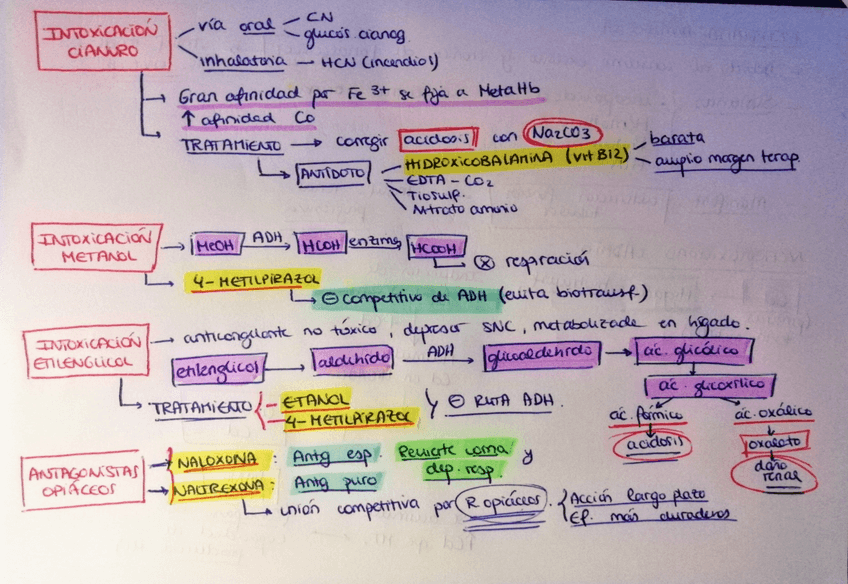 INTOXICACIÓN CIANURO
vía oral
CN
glucós cianog.
inhalatoria — HCN (incendios)
Gran afinidad por Fe 3+ se fija a MetaHb
↑ afinidad Co
TRATAMIENTO → corregir acidosis con Na2CO3
ANTÍDOTO
HIDROXICOBALAMINA (vit B12)
barata
amplio margen terap.
EDTA - CO2
Tiosulf.
Nitrato amonio
INTOXICACIÓN METANOL
MeOH ADH → HCOH enzima → HCOOH
⊗ respiración
4-METILPIRAZOL
⊖ competitivo de ADH (evita biotransf.)
INTOXICACIÓN ETILENGLICOL
→ anticongelante no tóxico, depresor SNC, metabolizado en hígado.
etilenglicol → aldehído ADH → glicoaldehido → ác. glicólico
ác. glicoxílico
ác. fórmico
ác. oxálico
acidosis
oxalato
daño renal
TRATAMIENTO
ETANOL
4-METILPIRAZOL
y ⊖ RUTA ADH.
ANTAGONISTAS OPIÁCEOS
NALOXONA: Antg esp. Revierte coma y dep. resp.
NALTREXONA: Antg puro
unión competitiva por R opiáceos.
Acción largo plazo
Ef. más duraderos